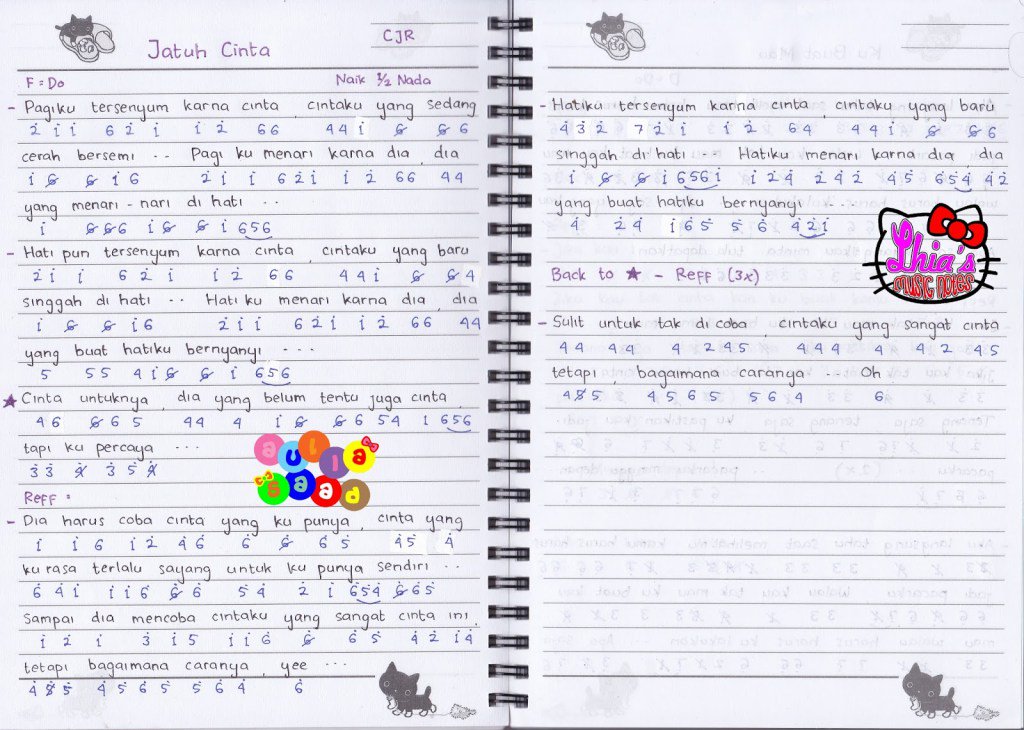 Jatuh Cinta
CJR
F = Do
Naik ½ Nada
- Pagiku tersenyum karna cinta, cintaku yang sedang
2 i i 6 2 i i 2 66 44 i 6 6 6
cerah bersemi .. Pagi ku menari karna dia, dia
i 6 6 i 6 2 i i 6 2 i i 2 66 44
yang menari - nari di hati ..
i 6 6 6 i 6 6 i 656
- Hati pun tersenyum karna cinta, cintaku yang baru
2 i i 6 2 i i 2 66 44 i 6 6 4
singgah di hati .. Hatiku menari karna dia, dia
i 6 6 i6 2 i i 6 2 i i 2 66 44
yang buat hatiku bernyanyi ...
5 55 4 i 6 6 i 656
★ Cinta untuknya, dia yang belum tentu juga cinta,
46 6 6 5 44 4 i 6 6 6 54 1 656
tapi ku percaya ...
33 x 3 5 x
Reff :
- Dia harus coba cinta yang ku punya, cinta yang
i i 6 i2 46 6 6 65 45 4
ku rasa terlalu sayang untuk ku punya sendiri ..
6 4 i i i 6 6 6 54 2 i 654 6 6 5
Sampai dia mencoba cintaku yang sangat cinta ini,
i 2 i 3 i 5 i i 6 6 65 42 i4
tetapi bagaimana caranya, yee ...
4 5 5 4 5 6 5 5 6 4 6
aulia
saad
- Hatiku tersenyum karna cinta, cintaku yang baru
4 3 2 7 2 i i 2 64 44 i 6 6 6
singgah di hati ... Hatiku menari karna dia, dia
i 6 6 i 656i i 2 4 2 4 2 45 654 42
yang buat hatiku bernyanyi ..
4 24 i65 5 6 42i
Lhia's
music notes
Back to ★ - Reff (3x)
- Sulit untuk tak di coba, cintaku yang sangat cinta
44 44 4 245 444 4 42 45
tetapi, bagaimana caranya ... Oh.
4 5 5 4 5 6 5 5 6 4 6